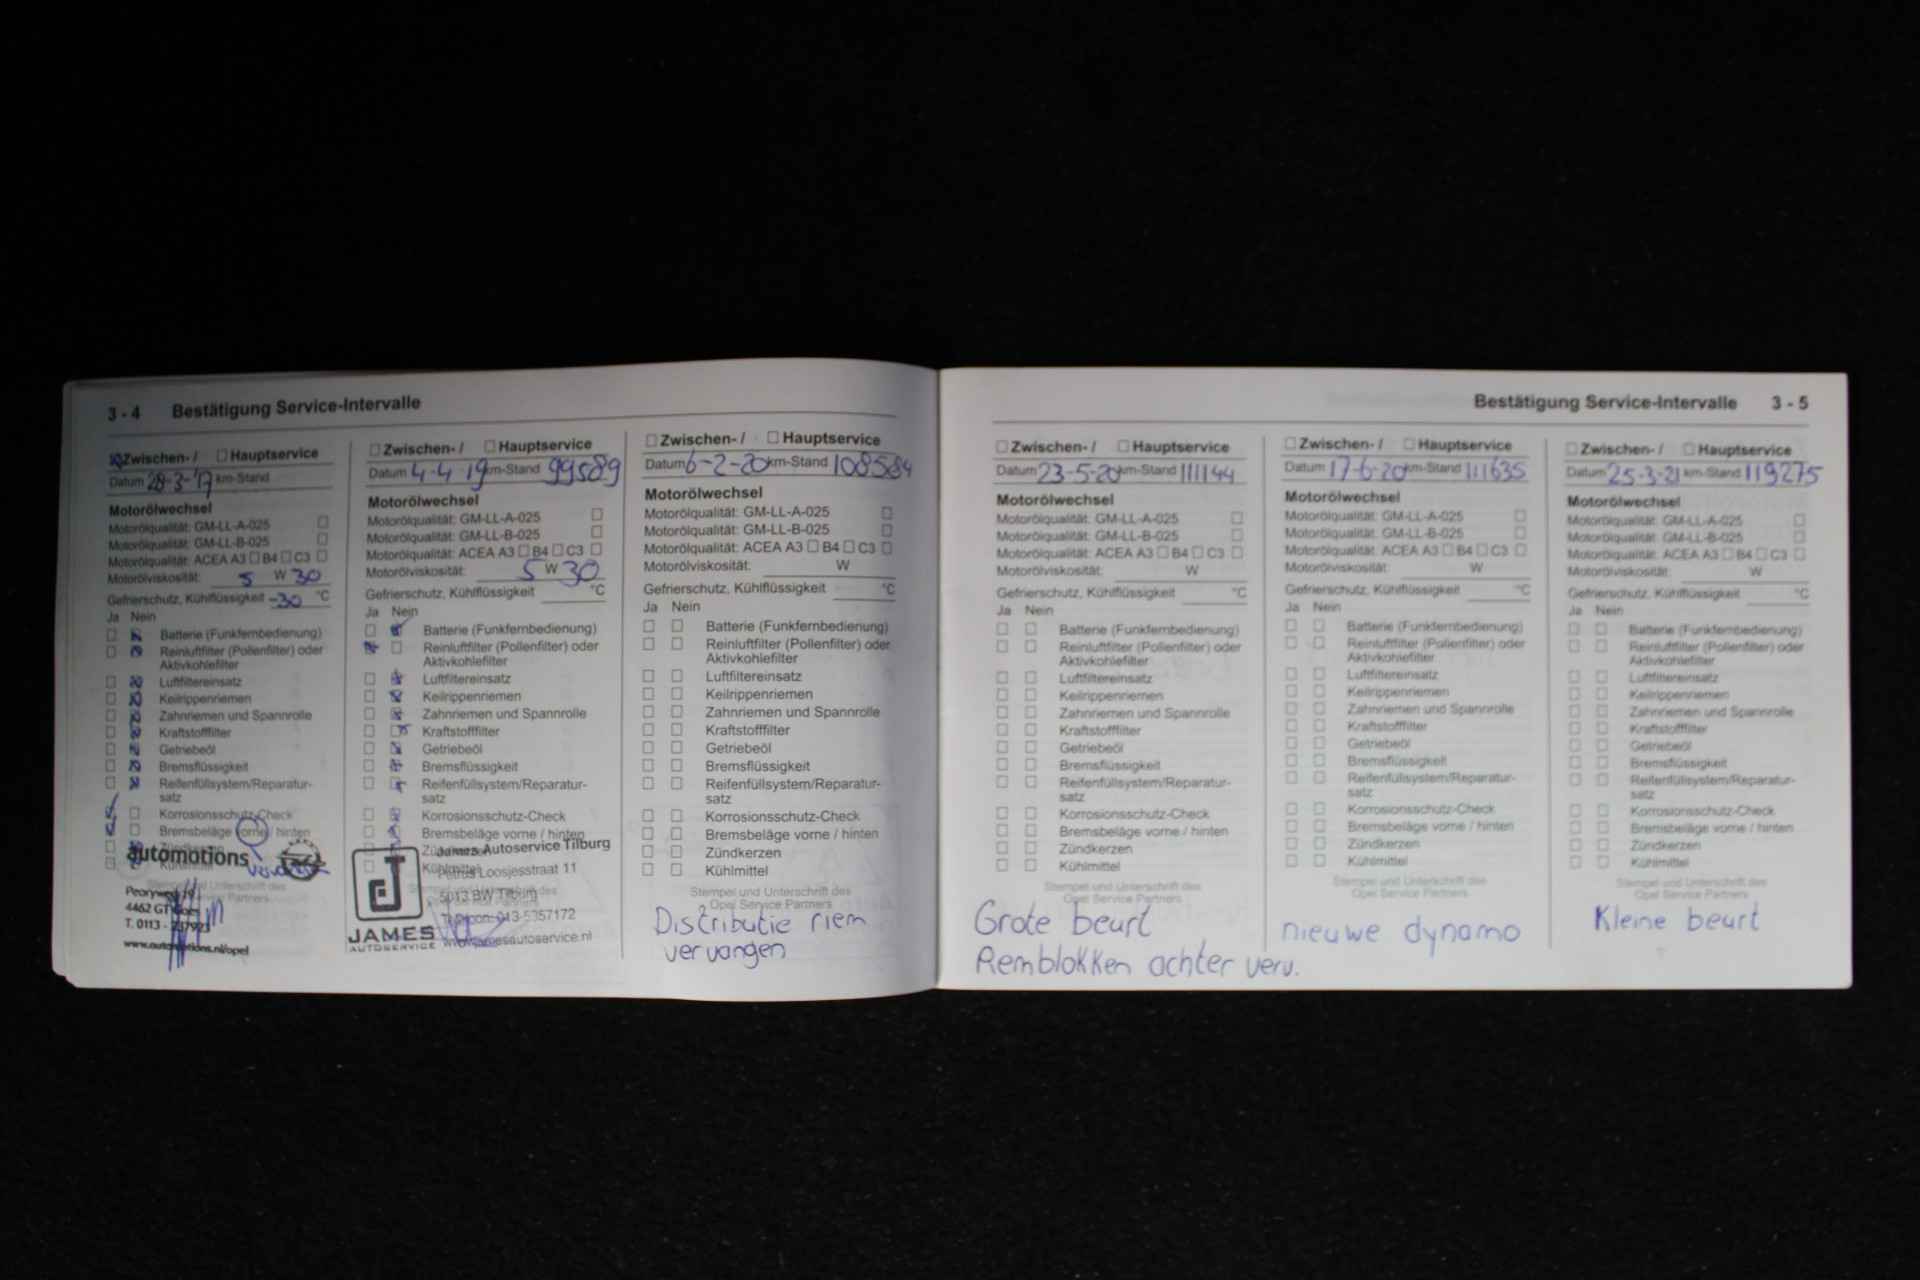 3 - 4 Bestätigung Service-Intervalle
Zwischen- / Hauptservice
Datum 28-3-'17 km-Stand
Motorölwechsel
Motorölqualität: GM-LL-A-025
Motorölqualität: GM-LL-B-025
Motorölqualität: ACEA A3 B4 C3
Motorölviskosität: 5 W 30
Gefrierschutz, Kühlflüssigkeit -30 °C
Ja Nein
Batterie (Funkfernbedienung)
Reinluftfilter (Pollenfilter) oder
Aktivkohlefilter
Luftfiltereinsatz
Keilrippenriemen
Zahnriemen und Spannrolle
Kraftstofffilter
Getriebeöl
Bremsflüssigkeit
Reifenfüllsystem/Reparatur-
satz
Korrosionsschutz-Check
Bremsbeläge vorne / hinten
Zündkerzen
Kühlmittel
automotions
Pearyweg 19
4462 GT Goes
T. 0113 - 237923
www.automotions.nl/opel
Zwischen- / Hauptservice
Datum 4-4 19 km-Stand 99589
Motorölwechsel
Motorölqualität: GM-LL-A-025
Motorölqualität: GM-LL-B-025
Motorölqualität: ACEA A3 B4 C3
Motorölviskosität: 5 W 30
Gefrierschutz, Kühlflüssigkeit °C
Ja Nein
Batterie (Funkfernbedienung)
Reinluftfilter (Pollenfilter) oder
Aktivkohlefilter
Luftfiltereinsatz
Keilrippenriemen
Zahnriemen und Spannrolle
Kraftstofffilter
Getriebeöl
Bremsflüssigkeit
Reifenfüllsystem/Reparatur-
satz
Korrosionsschutz-Check
Bremsbeläge vorne / hinten
Zündkerzen
Kühlmittel
James Autoservice Tilburg
Petrus Loosjesstraat 11
5013 BW Tilburg
013-5357172
www.jamesautoservice.nl
JAMES
AUTOSERVICE
Zwischen- / Hauptservice
Datum 6-2-20 km-Stand 108584
Motorölwechsel
Motorölqualität: GM-LL-A-025
Motorölqualität: GM-LL-B-025
Motorölqualität: ACEA A3 B4 C3
Motorölviskosität: W
Gefrierschutz, Kühlflüssigkeit °C
Ja Nein
Batterie (Funkfernbedienung)
Reinluftfilter (Pollenfilter) oder
Aktivkohlefilter
Luftfiltereinsatz
Keilrippenriemen
Zahnriemen und Spannrolle
Kraftstofffilter
Getriebeöl
Bremsflüssigkeit
Reifenfüllsystem/Reparatur-
satz
Korrosionsschutz-Check
Bremsbeläge vorne / hinten
Zündkerzen
Kühlmittel
Stempel und Unterschrift des
Opel Service Partners
Distributie riem
vervangen
Bestätigung Service-Intervalle 3 - 5
Zwischen- / Hauptservice
Datum 23-5-20 km-Stand 111144
Motorölwechsel
Motorölqualität: GM-LL-A-025
Motorölqualität: GM-LL-B-025
Motorölqualität: ACEA A3 B4 C3
Motorölviskosität: W
Gefrierschutz, Kühlflüssigkeit °C
Ja Nein
Batterie (Funkfernbedienung)
Reinluftfilter (Pollenfilter) oder
Aktivkohlefilter
Luftfiltereinsatz
Keilrippenriemen
Zahnriemen und Spannrolle
Kraftstofffilter
Getriebeöl
Bremsflüssigkeit
Reifenfüllsystem/Reparatur-
satz
Korrosionsschutz-Check
Bremsbeläge vorne / hinten
Zündkerzen
Kühlmittel
Stempel und Unterschrift des
Opel Service Partners
Grote beurt
Remblokken achter verv.
Zwischen- / Hauptservice
Datum 17-6-20 km-Stand 111635
Motorölwechsel
Motorölqualität: GM-LL-A-025
Motorölqualität: GM-LL-B-025
Motorölqualität: ACEA A3 B4 C3
Motorölviskosität: W
Gefrierschutz, Kühlflüssigkeit °C
Ja Nein
Batterie (Funkfernbedienung)
Reinluftfilter (Pollenfilter) oder
Aktivkohlefilter
Luftfiltereinsatz
Keilrippenriemen
Zahnriemen und Spannrolle
Kraftstofffilter
Getriebeöl
Bremsflüssigkeit
Reifenfüllsystem/Reparatur-
satz
Korrosionsschutz-Check
Bremsbeläge vorne / hinten
Zündkerzen
Kühlmittel
Stempel und Unterschrift des
Opel Service Partners
nieuwe dynamo
Zwischen- / Hauptservice
Datum 25-3-21 km-Stand 119275
Motorölwechsel
Motorölqualität: GM-LL-A-025
Motorölqualität: GM-LL-B-025
Motorölqualität: ACEA A3 B4 C3
Motorölviskosität: W
Gefrierschutz, Kühlflüssigkeit °C
Ja Nein
Batterie (Funkfernbedienung)
Reinluftfilter (Pollenfilter) oder
Aktivkohlefilter
Luftfiltereinsatz
Keilrippenriemen
Zahnriemen und Spannrolle
Kraftstofffilter
Getriebeöl
Bremsflüssigkeit
Reifenfüllsystem/Reparatur-
satz
Korrosionsschutz-Check
Bremsbeläge vorne / hinten
Zündkerzen
Kühlmittel
Stempel und Unterschrift des
Opel Service Partners
Kleine beurt